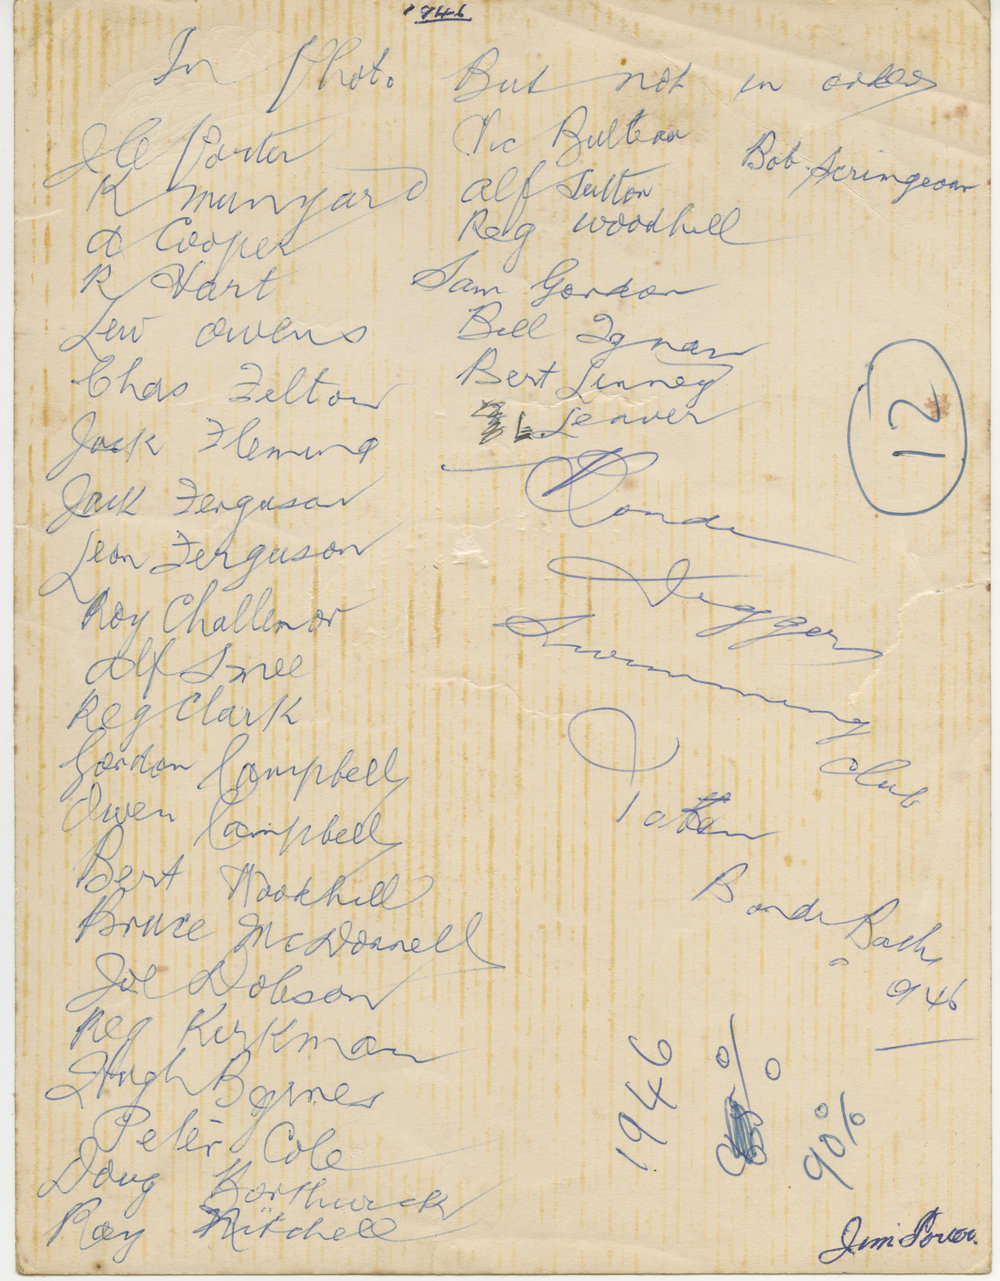 1946
In Photo But not in order
J C Porter
K Munyard
A Cooper
R Hart
Lew Owens
Chas Felton
Jack Fleming
Jack Ferguson
Leon Ferguson
Roy Challenor
Alf Smee
Reg Clark
Gordon Campbell
Owen Campbell
Bert Woodhill
Bruce McDonnell
Joe Dobson
Reg Kirkman
Hugh Byrnes
Peter Cole
Doug
Ray Mitchell
Vic
Alf Sutton
Reg Woodhill
Sam Gordon
Bill
Bert Linney
L Leaver
Bob Scringeour
12
Bondi
Diggers
Swimming
Club
Taken
Bondi Baths
1946
1946
90%
Jim Power.